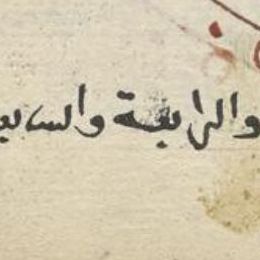 والرابعة والسابع